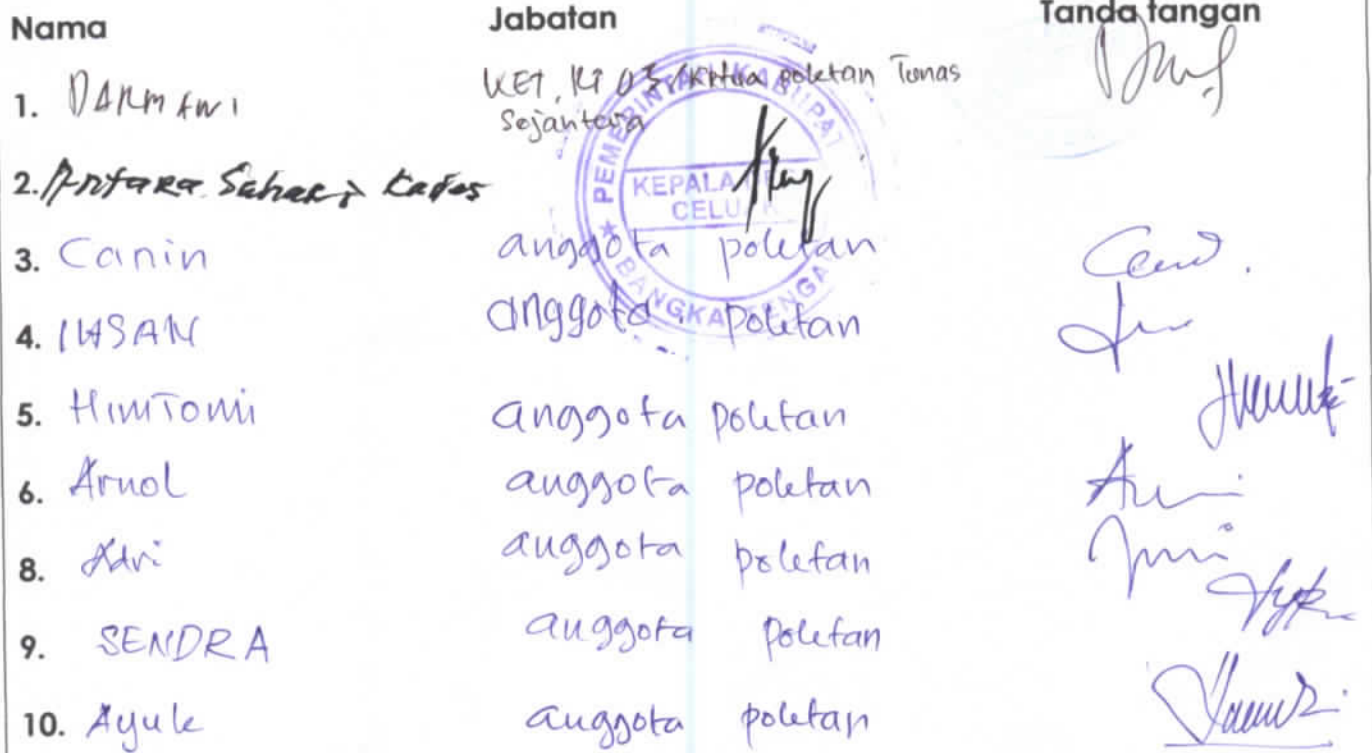 Nama Jabatan Tanda tangan
1. DARMAWI KET. RT 03 / Ketua poletan Tunas
Sejantera
2. Antara Sahari Kades
3. Canin anggota poletan
4. IHSAN anggota poletan
5. HimTomi anggota poletan
6. Arnol anggota poletan
8. Adri anggota poletan
9. SENDRA anggota poletan
10. Ayule anggota poletan
PEMERINTAH KABUPAT
KEPALA
CELU
BANGKA TENGA